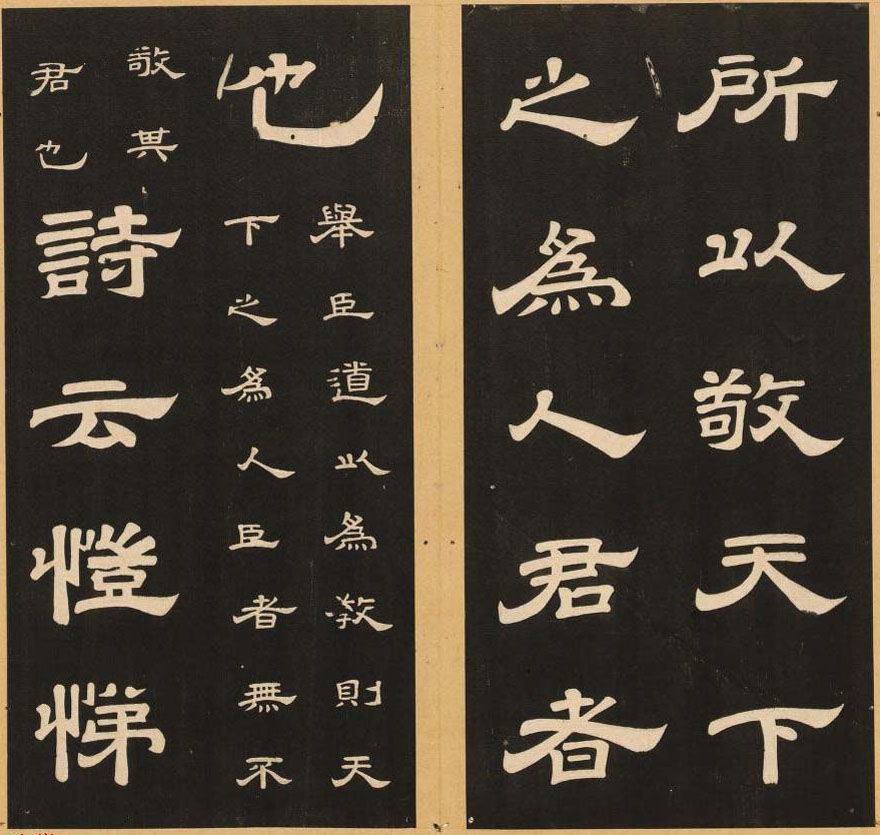 所以敬天下
之為人君者
也
舉臣道以為教則天
下之為人臣者無不
敬其
君也
詩云愷悌